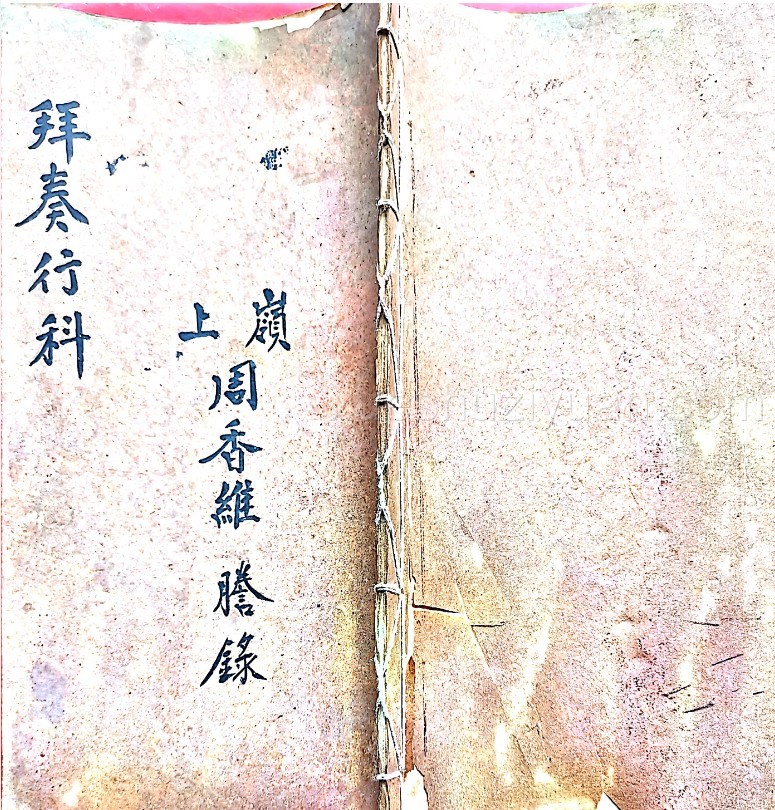 嶺上
周香維 謄錄
拜奏行科